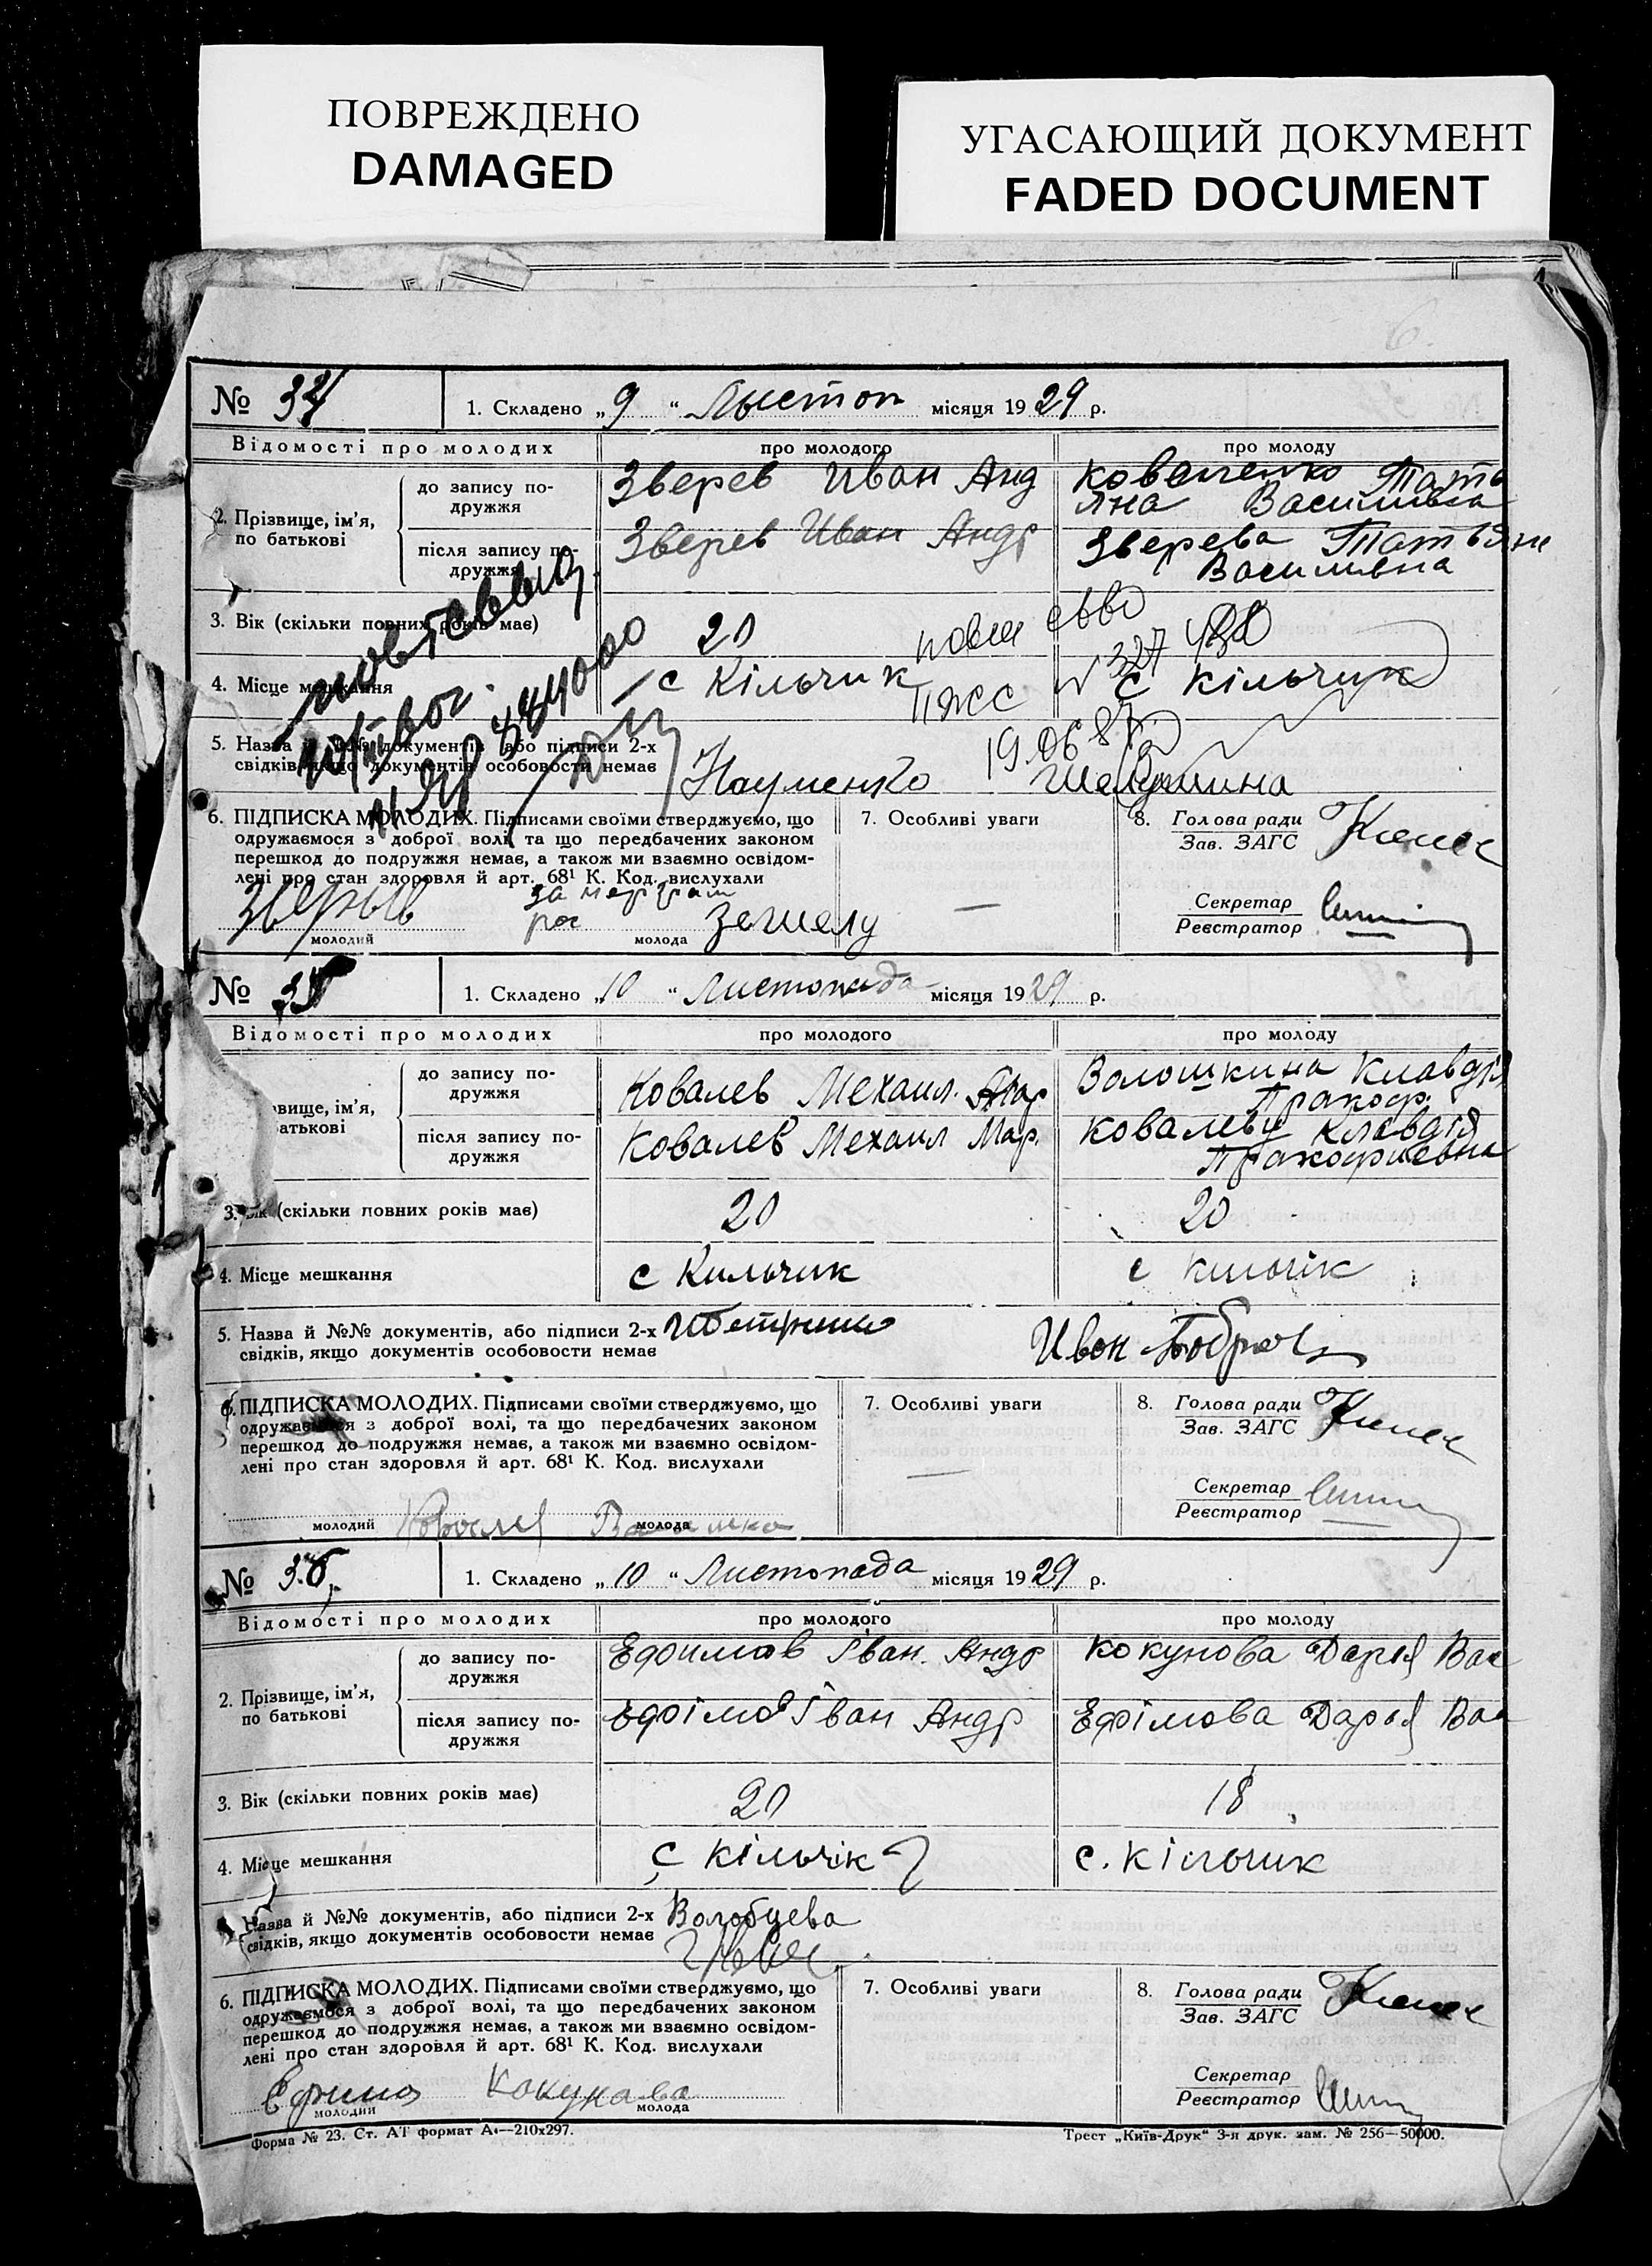 ПОВРЕЖДЕНО
DAMAGED
УГАСАЮЩИЙ ДОКУМЕНТ
FADED DOCUMENT
№ 34 1. Складено „9“ Лыстоп місяця 1929 р.
Відомості про молодих про молодого про молоду
2. Прізвище, ім’я, по батькові
до запису по-
дружжя
Зверев Иван Анд
Коваленко Татья
яна Васильвна
після запису по-
дружжя
Зверев Иван Андр
Зверева Татьяна
Васильвна
3. Вік (скільки повних років має) 20
4. Місце мешкання с Кільчик с Кільчик
повт свво
№ 327 488
19.06.87
5. Назва й №№ документів або підписи 2-х
свідків, якщо документів особовости немає
Науменко
6. ПІДПИСКА МОЛОДИХ. Підписами своїми стверджуємо, що
одружаємося з доброї волі, та що передбачених законом
перешкод до подружжя немає, а також ми взаємно освідом-
лені про стан здоровля й арт. 68¹ К. Код. вислухали
молодий молода
7. Особливі уваги
—
8. Голова ради
Зав. ЗАГС
Секретар
Реєстратор
№ 35 1. Складено „10“ Листопада місяця 1929 р.
Відомості про молодих про молодого про молоду
вище, ім’я,
батькові
до запису по-
дружжя
Ковалев Мехаил. Мар
Волошкина Клавдія
Пракоф.
після запису по-
дружжя
Ковалев Мехаил Мар.
Ковалева Клавдія
Пракофиевна
3. Вік (скільки повних років має) 20 20
4. Місце мешкання с Кильчик с Кильчік
5. Назва й №№ документів, або підписи 2-х
свідків, якщо документів особовости немає
Ивон
6. ПІДПИСКА МОЛОДИХ. Підписами своїми стверджуємо, що
одружаємося з доброї волі, та що передбачених законом
перешкод до подружжя немає, а також ми взаємно освідом-
лені про стан здоровля й арт. 68¹ К. Код. вислухали
молодий Ковалев молода
7. Особливі уваги
—
8. Голова ради
Зав. ЗАГС
Секретар
Реєстратор
№ 36 1. Складено „10“ Листопада місяця 1929 р.
Відомості про молодих про молодого про молоду
2. Прізвище, ім’я,
по батькові
до запису по-
дружжя
Ефимов Іван. Андр
Кокунова Дарья Вас
після запису по-
дружжя
Ефімов Іван Андр
Ефімова Дарья Вас
3. Вік (скільки повних років має) 20 18
4. Місце мешкання с Кільчік с. Кільчик
5. Назва й №№ документів, або підписи 2-х
свідків, якщо документів особовости немає
Волобуева
6. ПІДПИСКА МОЛОДИХ. Підписами своїми стверджуємо, що
одружаємося з доброї волі, та що передбачених законом
перешкод до подружжя немає, а також ми взаємно освідом-
лені про стан здоровля й арт. 68¹ К. Код. вислухали
Ефимо Кокунава
молодий молода
7. Особливі уваги
8. Голова ради
Зав. ЗАГС
Секретар
Реєстратор
Форма № 23. Ст. АТ формат А4—210х297.
Трест „Київ-Друк“ 3-я друк. зам. № 256—50000.